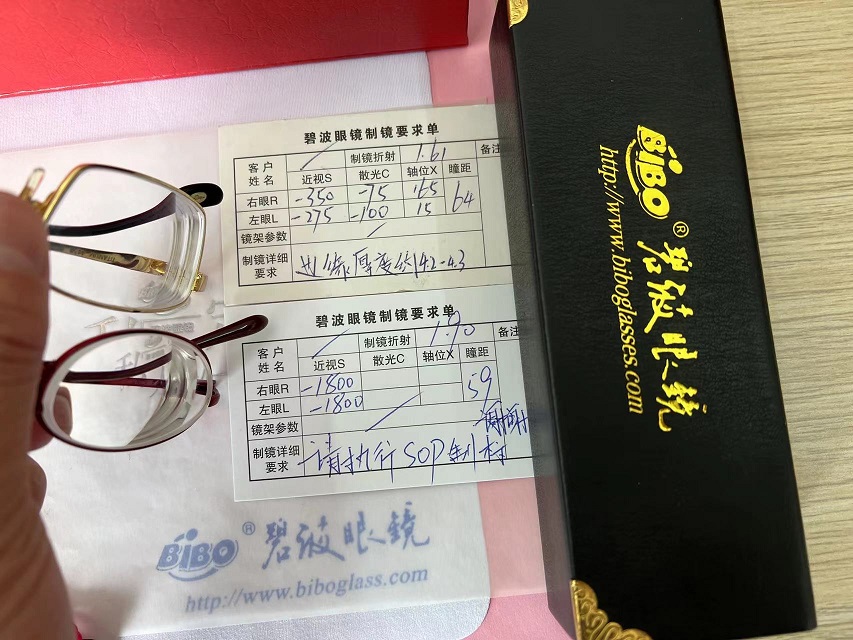 碧波眼镜制镜要求单
客户姓名 / 制镜折射 1.61 备注
近视S 散光C 轴位X 瞳距
右眼R -350 -75 165 64
左眼L -275 -100 15
镜架参数 /
制镜详细要求 边缘厚度约4.2-4.3
碧波眼镜制镜要求单
客户姓名 / 制镜折射 1.90 备注
近视S 散光C 轴位X 瞳距
右眼R -1800 59
左眼L -1800
镜架参数 /
谢谢
制镜详细要求 请执行SOP制材
BiBO® 碧波眼镜
http://www.biboglass.com
BiBO® 碧波眼镜
http://www.biboglasses.com